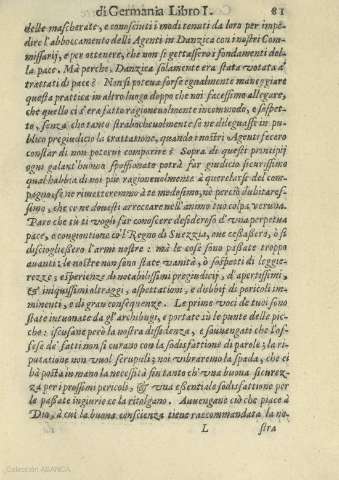 di Germania Libro I. 81
delle mascherate, e conosciuti i modi tenuti da loro per impe-
dire l'abboccamento delli Agenti in Danzica con i nostri Com-
missarij, e per ottenere, che non si gettassero i fondamenti del-
la pace. Mà perche Danzica solamente era stata votata à
trattati di pace? Non si poteua forse egualmente maneggiare
questa pratica in altro luogo doppo che noi facessimo allegare,
che quello ci s'era fatto ragioneuolmente incommodo, e sospet-
to, senza che tanto straboccheuolmente se ne dileguasse in pub-
blico pregiudicio la trattatione, quando i nostri Agenti fecero
constar di non poterui comparire? Sopra di questi principij
ogni galant'huomo spassionato potrà far giudicio sicurissimo
qual habbia di noi più ragioneuolmente à querelarsi del com-
pagno, e se ne rimetteremo à te medesimo, nè perciò dubitares-
simo, che conuenesti arreccare nell'animo tuo colpa veruna.
Pare che tù ti vogli far conoscere desideroso d'vna perpetua
pace, e congontione col Regno di Suezzia, oue cessassero, ò si
disciogliessero l'armi nostre: mà le cose sono passate troppo
auanti: le nostre non sono state vanità, ò sospetti di leggie-
rezze; esperienze di notabilissimi pregiudicij, d'apertissimi,
& iniquissimi oltraggi, aspettationi, e dubbij di pericoli im-
minenti, e di gran conseguenze. Le prime voci de tuoi sono
state intuonate da gl'archibugi, e portate sù le punte delle pic-
che: iscusane però la nostra diffidenza, e souuengati che l'of-
fese de' fatti non si curano con la sodisfattione di parole; la ri-
putatione non vuol scrupuli; noi vibraremo la spada, che ci
hà posta in mano la necessità fin tanto ch'vna buona sicurez-
za per i prossimi pericoli, & vna essentiale sodisfattione per
le passate ingiurie ce la ritolgano. Auuengane ciò che piace à
Dio, à cui la buona conscienza tiene raccommandata la no-
L stra
Colección ABANCA